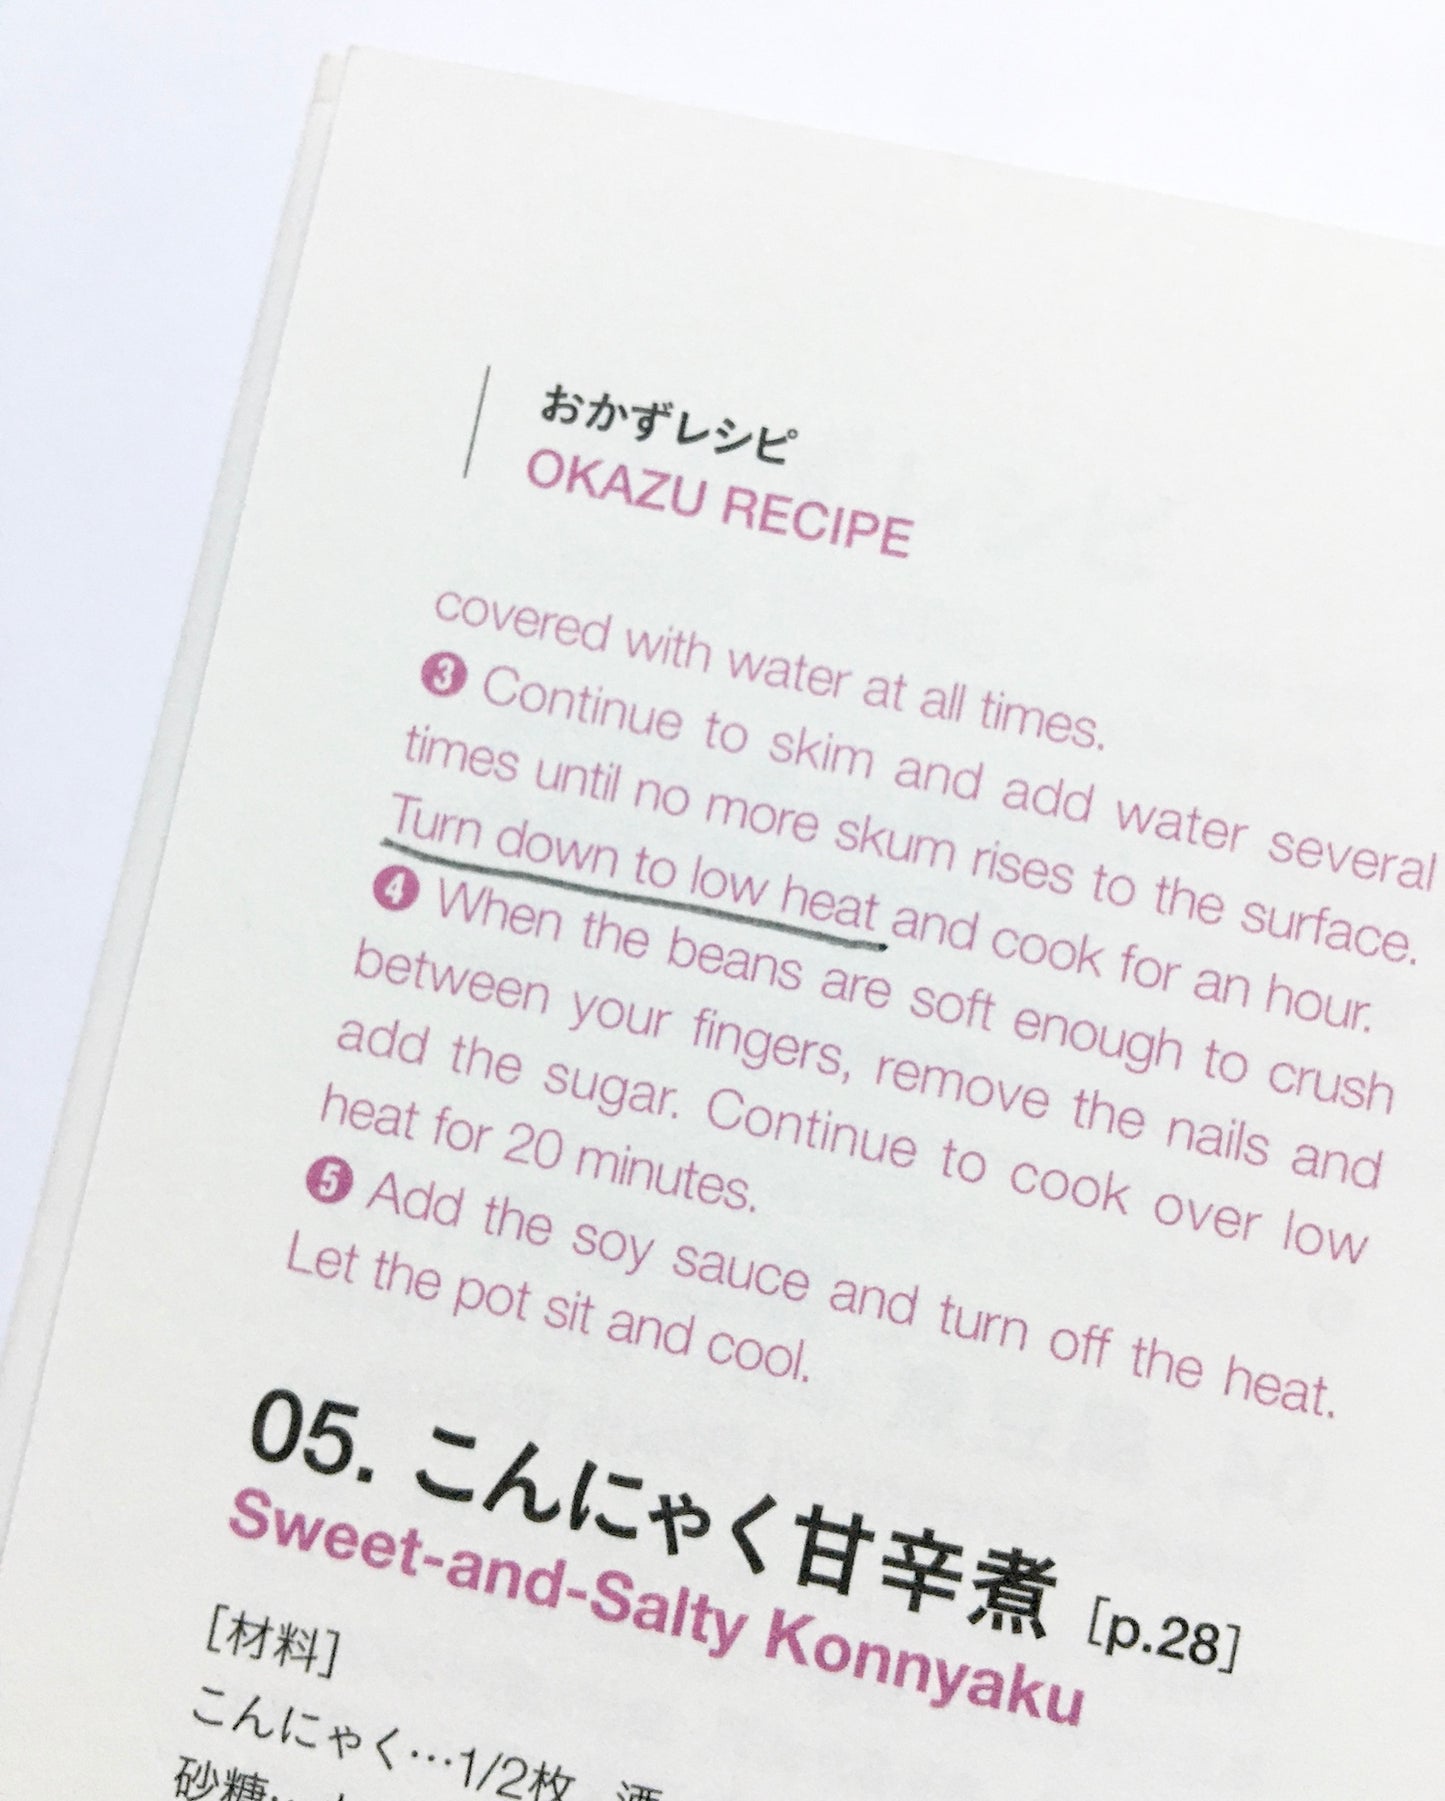 おかずレシピ
OKAZU RECIPE
covered with water at all times.
❸ Continue to skim and add water several
times until no more skum rises to the surface.
Turn down to low heat and cook for an hour.
❹ When the beans are soft enough to crush
between your fingers, remove the nails and
add the sugar. Continue to cook over low
heat for 20 minutes.
❺ Add the soy sauce and turn off the heat.
Let the pot sit and cool.
05. こんにゃく甘辛煮 [p.28]
Sweet-and-Salty Konnyaku
[材料]
こんにゃく…1/2枚 酒
砂糖…